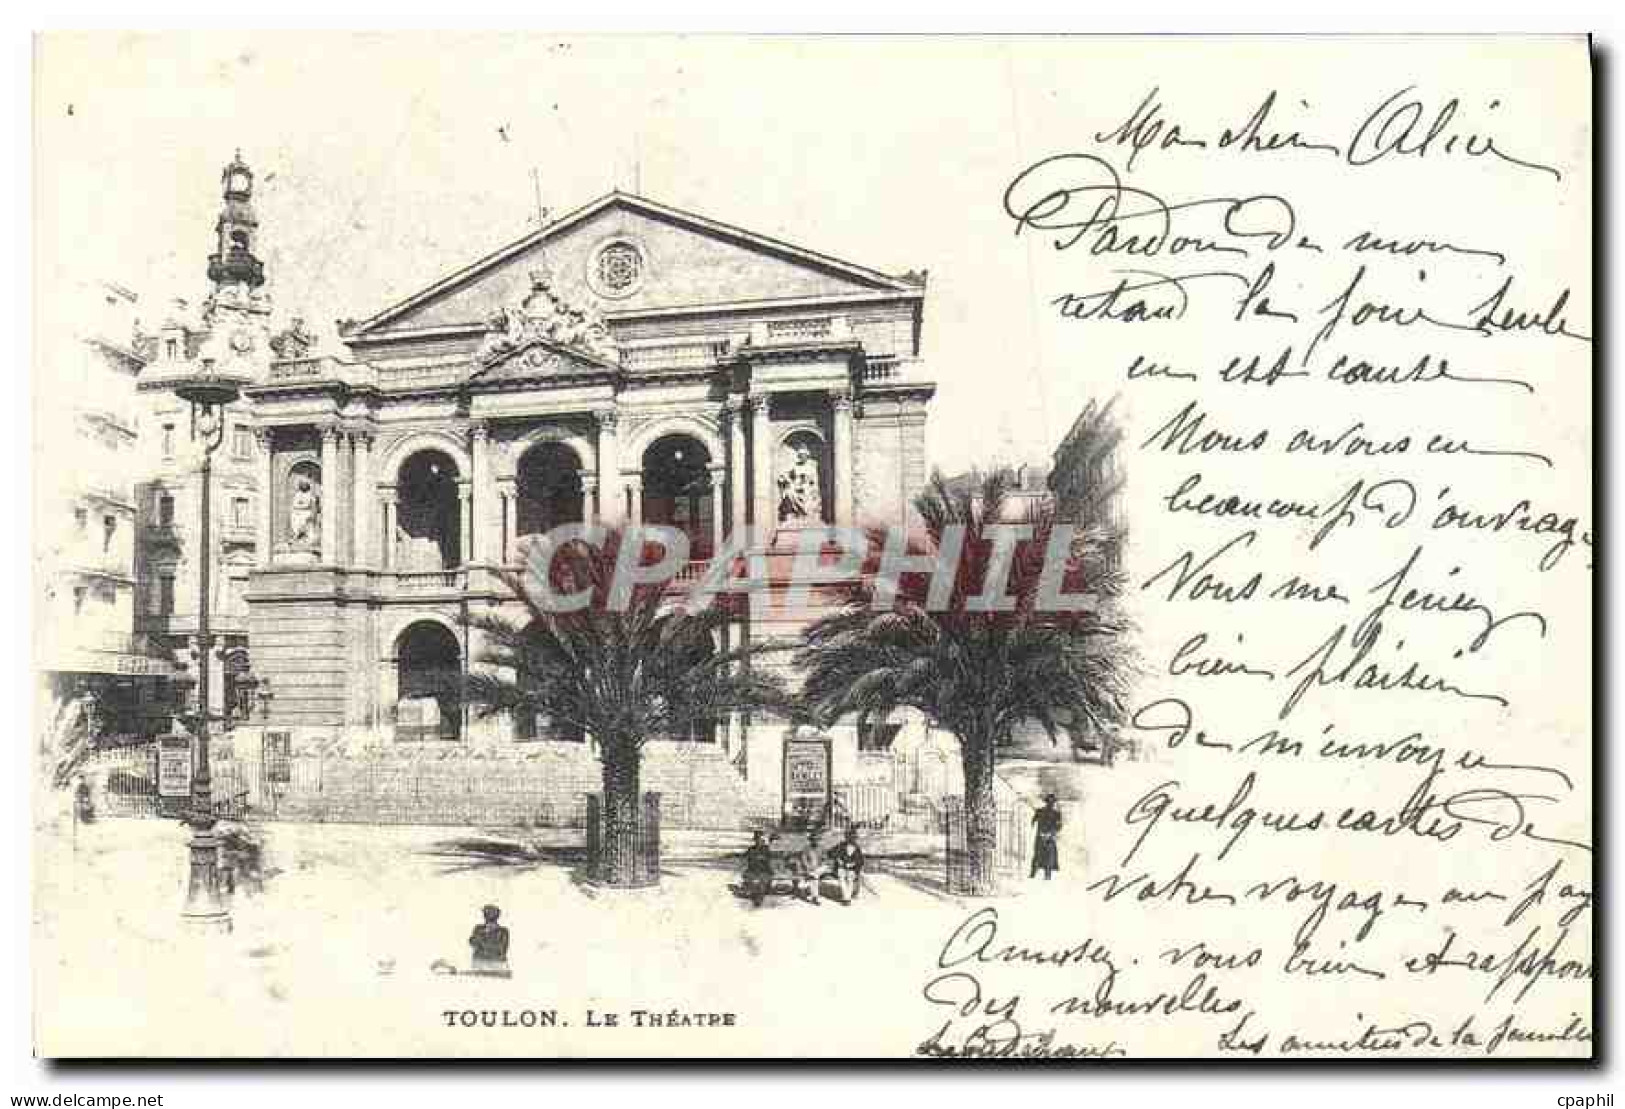 Ma chère Alice
Pardon de mon
retard la foire seule
en est cause
Nous avons eu
beaucoup d'ouvrage
Vous me feriez
bien plaisir
de m'envoyer
quelques cartes de
votre voyage au pay
Amusez-vous bien et rappor
des nouvelles
Les amitiés de la famille
CPAPHIL
TOULON. LE THÉATRE
cpaphil